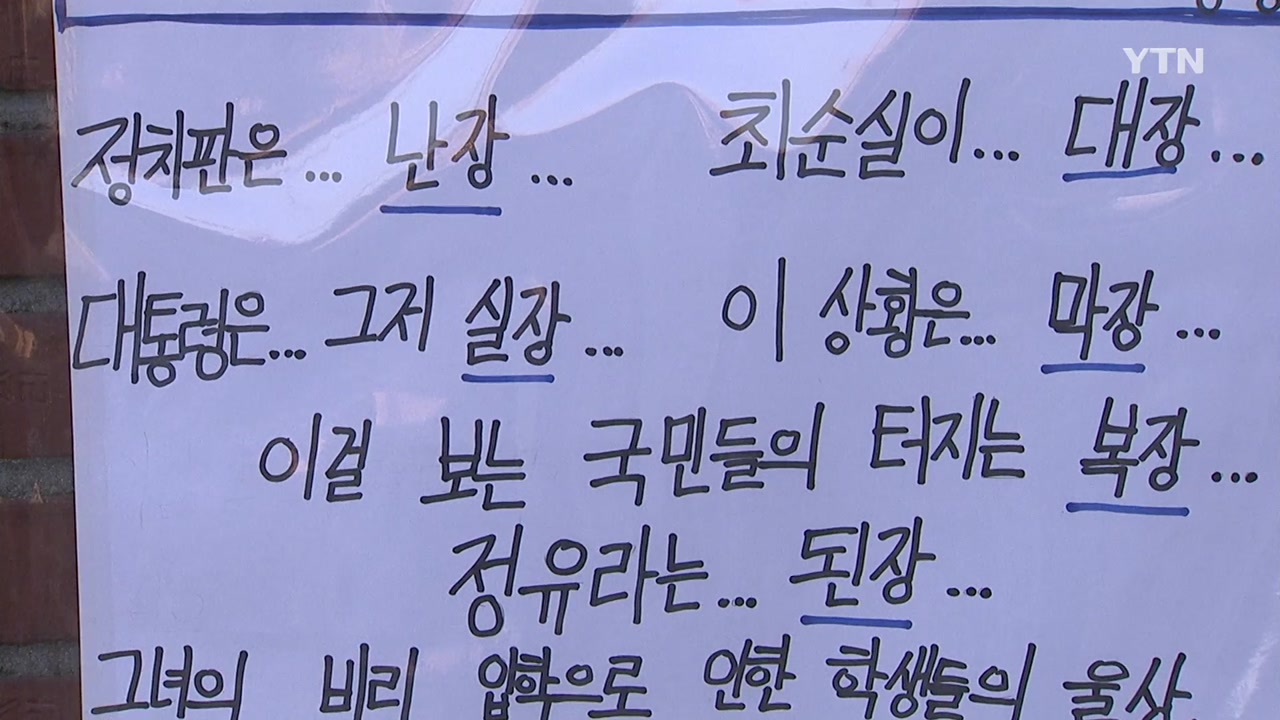 YTN
정치판은... 난장... 최순실이... 대장...
대통령은... 그저 실장... 이 상황은... 막장...
이걸 보는 국민들의 터지는 복장...
정유라는... 된장...
그녀의 비리 입학으로 인한 학생들의 울상